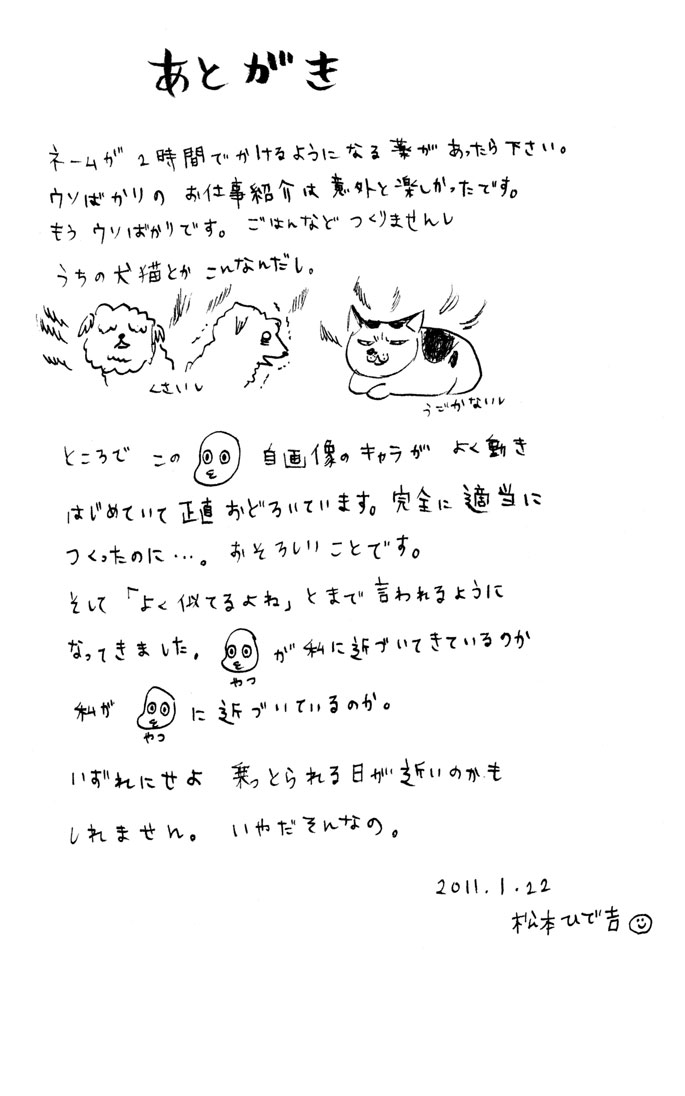 あとがき
ネームが 2時間でかけるようになる薬が あったら下さい。
ウソばかりの お仕事紹介は 意外と楽しかったです。
もう ウソばかりです。 ごはんなど つくりませんし
うちの犬猫とか こんなんだし。
くさいし
うごかないし
ところで この 自画像のキャラが よく動き
はじめていて 正直 おどろいています。完全に 適当に
つくったのに…。 おそろしい ことです。
そして 「よく似てるよね」とまで 言われるように
なってきました。 が 私に近づいてきているのか
やつ
私が に 近づいているのか。
やつ
いずれにせよ 乗っとられる日が 近いのかも
しれません。 いやだそんなの。
2011.1.22
松本ひで吉